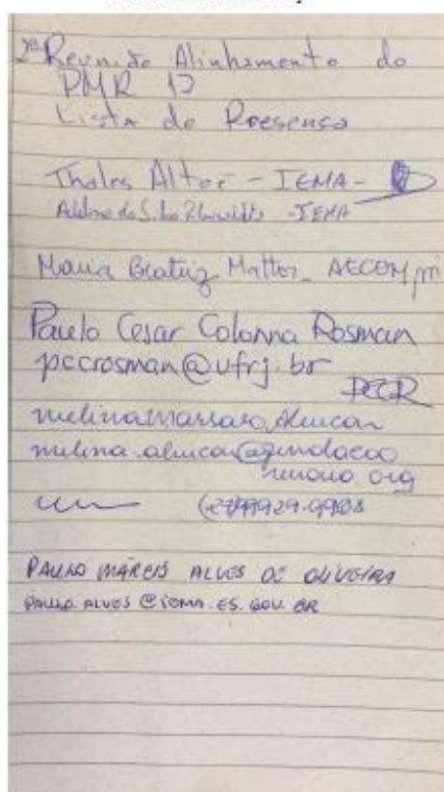 2ª Reunião Alinhamento do
PMR 12
Lista de Presença
Thales Altoé - IEMA -
-IEMA
Maria Beatriz Mattos - AECOM
Paulo Cesar Colonna Rosman
pccrosman@ufrj.br
PCCR
melina marsaro Alencar
melina.alencar@fundacao
renova org
PAULO MÁRCIO ALVES DE OLIVEIRA
PAULO.ALVES@IEMA.ES.GOV.BR